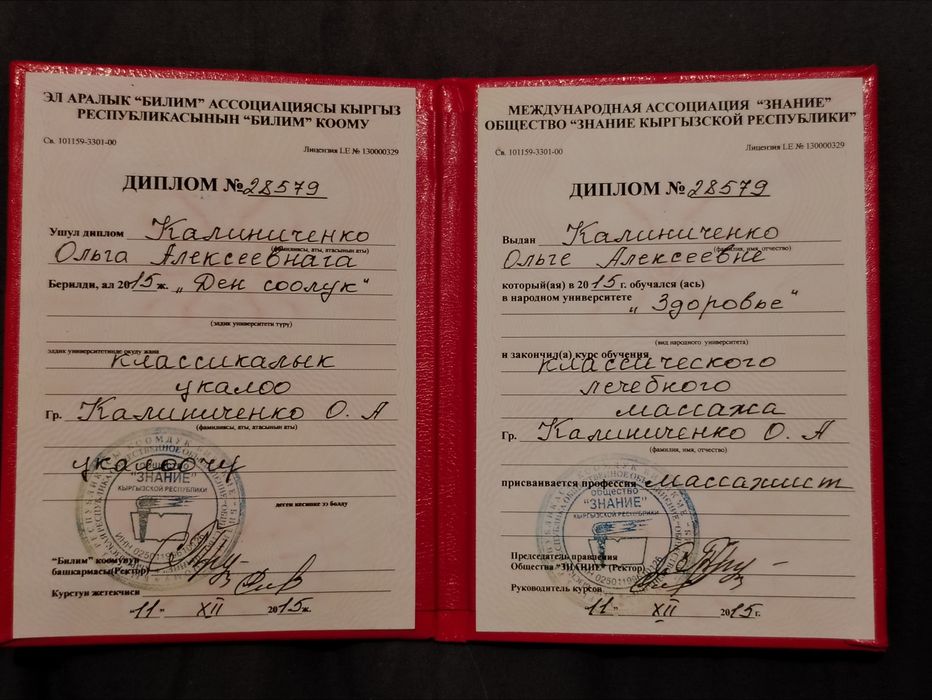 ЭЛ АРАЛЫК “БИЛИМ” АССОЦИАЦИЯСЫ КЫРГЫЗ
РЕСПУБЛИКАСЫНЫН “БИЛИМ” КООМУ
Св. 101159-3301-00
Лицензия LE № 130000329
ДИПЛОМ № 28579
Ушул диплом Калиниченко
(фамилиясы, аты, атасынын аты)
Ольга Алексеевнага
Берилди, ал 2015 ж. „Ден соолук“
(элдик университети түрү)
элдик университетинде окуду жана
классикалык
укалоо
Гр. Калиниченко О. А
(фамилиясы, аты, атасынын аты)
укалоочу
деген кесипке ээ болду
общество
“ЗНАНИЕ”
КЫРГЫЗСКОЙ РЕСПУБЛИКИ
“Билим” коомунун
башкармасы(Ректор)
Курстун жетекчиси
“11” XII 2015ж.
МЕЖДУНАРОДНАЯ АССОЦИАЦИЯ “ЗНАНИЕ”
ОБЩЕСТВО “ЗНАНИЕ КЫРГЫЗСКОЙ РЕСПУБЛИКИ”
Св. 101159-3301-00
Лицензия LE № 130000329
ДИПЛОМ № 28579
Выдан Калиниченко
(фамилия, имя, отчество)
Ольге Алексеевне
который(ая) в 2015 г. обучался (ась)
в народном университете „Здоровье“
(вид народного университета)
и закончил(а) курс обучения
классического
лечебного
массажа
Гр. Калиниченко О. А
(фамилия, имя, отчество)
присваивается профессия массажист
общество
“ЗНАНИЕ”
КЫРГЫЗСКОЙ РЕСПУБЛИКИ
Председатель правления
Общества “ЗНАНИЕ” (Ректор)
Руководитель курсов
“11” XII 2015г.